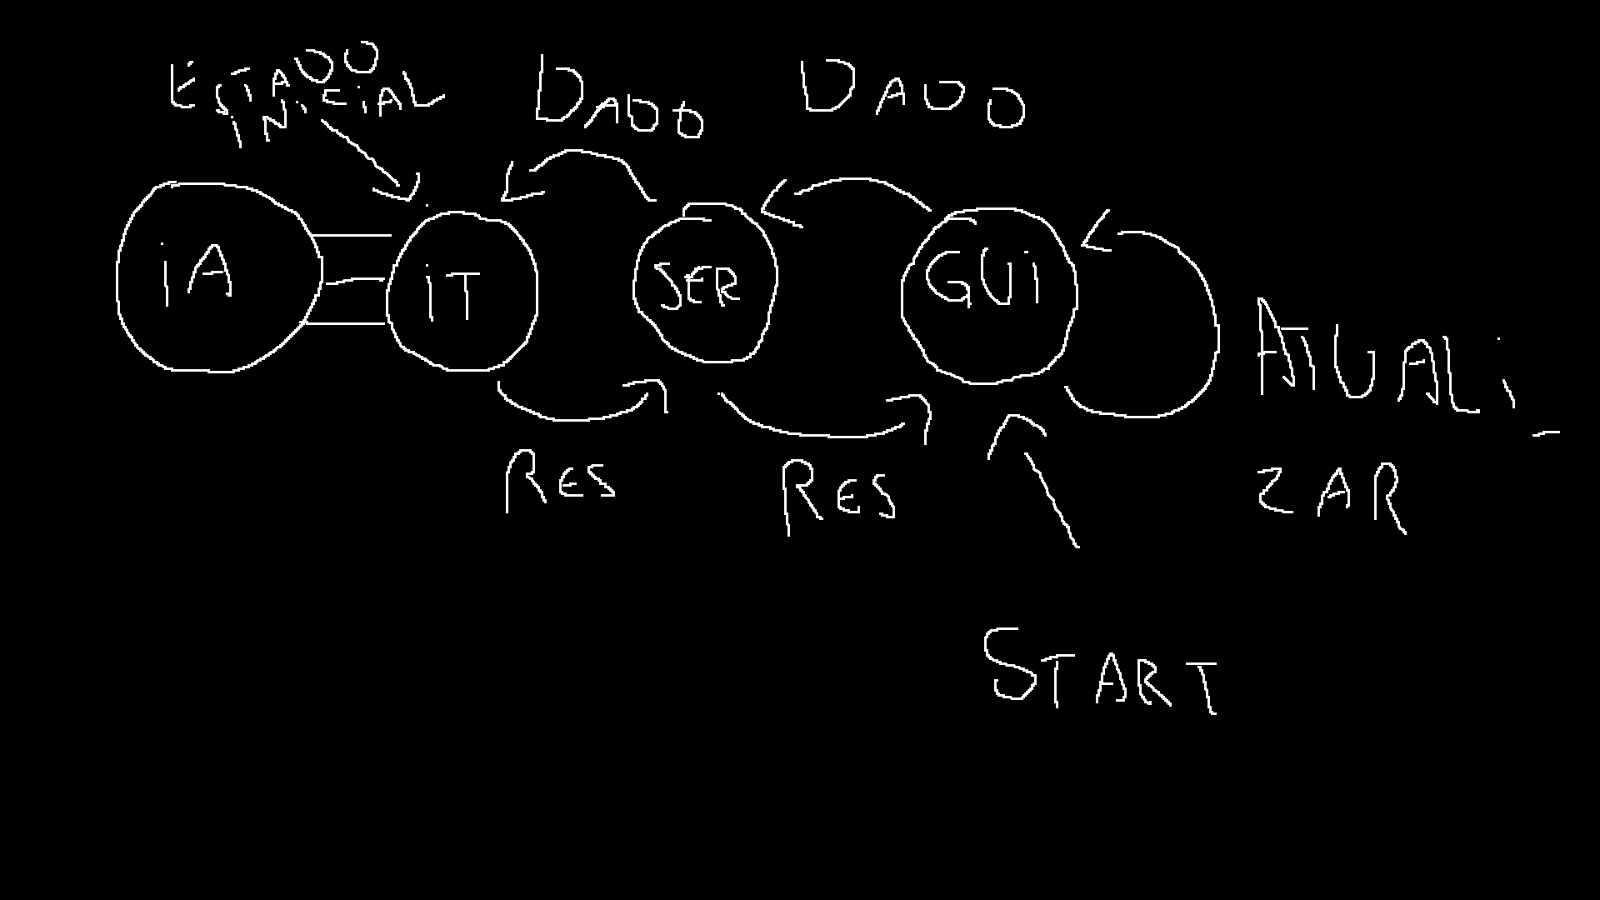 ESTADO
INICIAL
DADO
DADO
iA
iT
SER
GUi
ATUALi_
ZAR
RES
RES
START